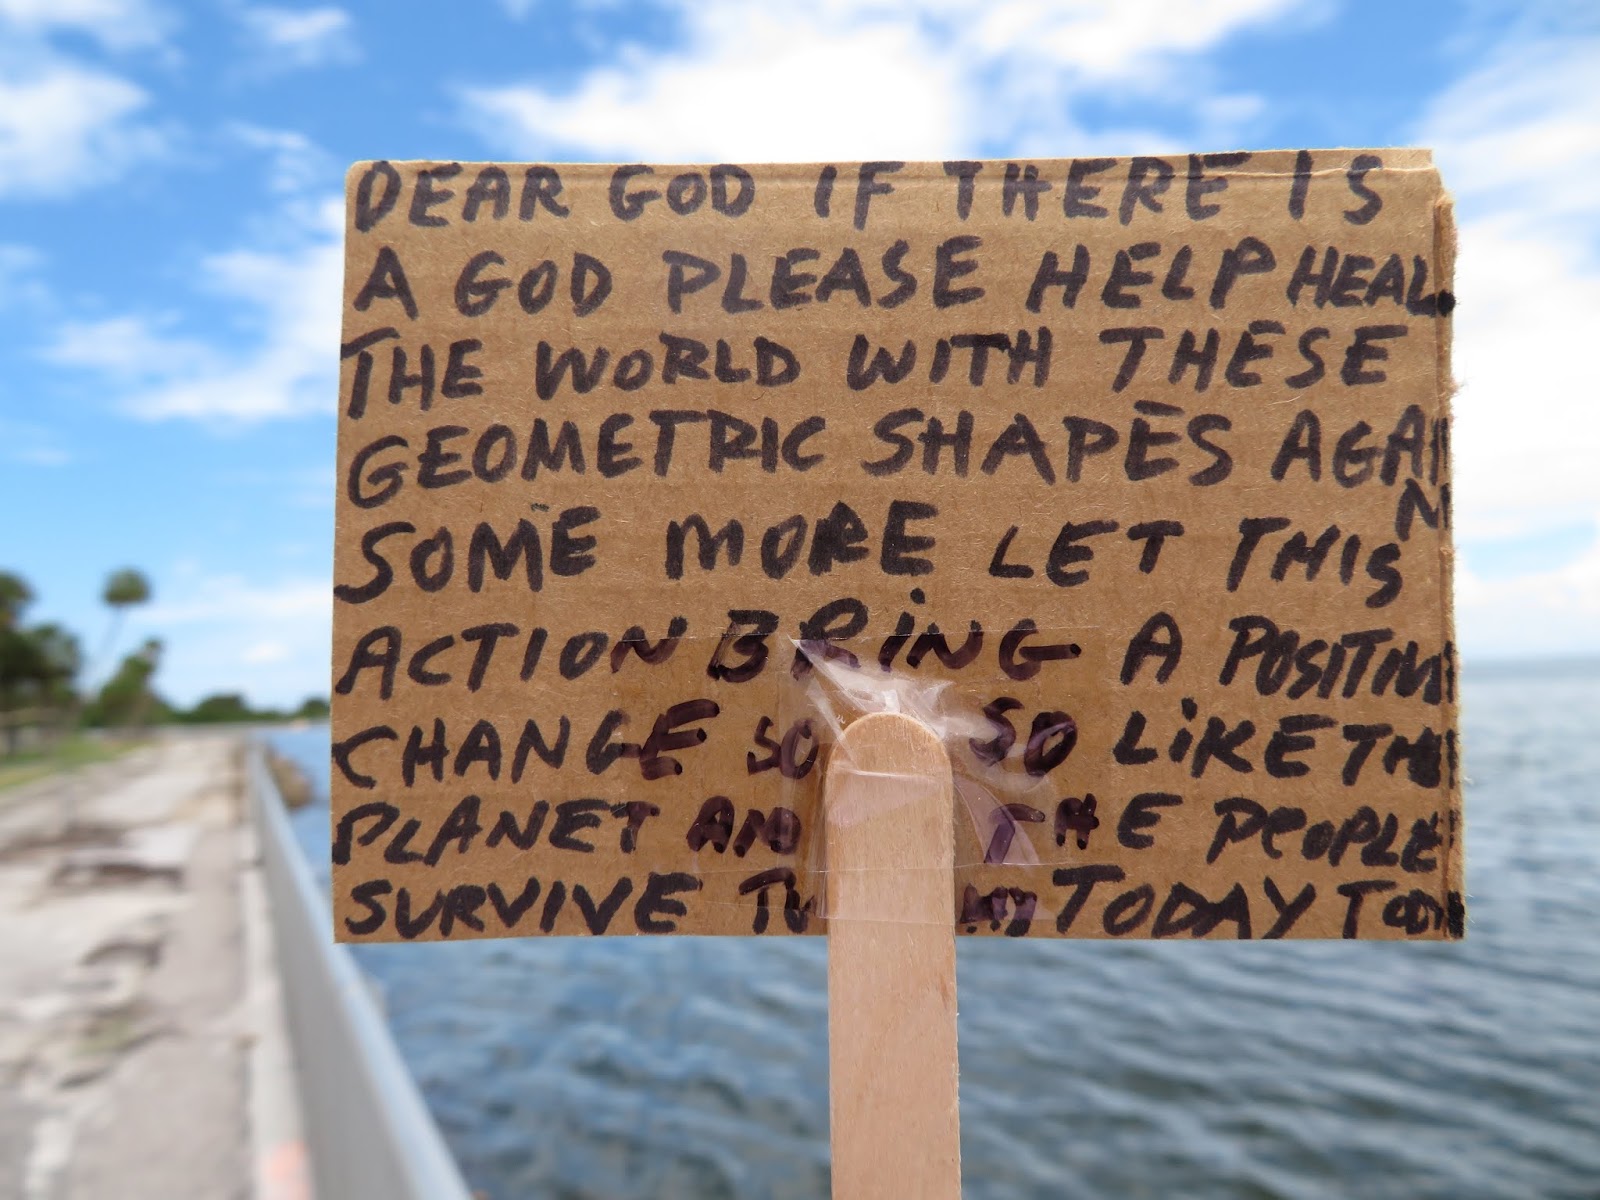 DEAR GOD IF THERE IS
A GOD PLEASE HELP HEAL
THE WORLD WITH THESE
GEOMETRIC SHAPES AGAIN
SOME MORE LET THIS
ACTION BRING A POSITIVE
CHANGE SO LIKE THE
PLANET AND THE PEOPLE
SURVIVE TODAY